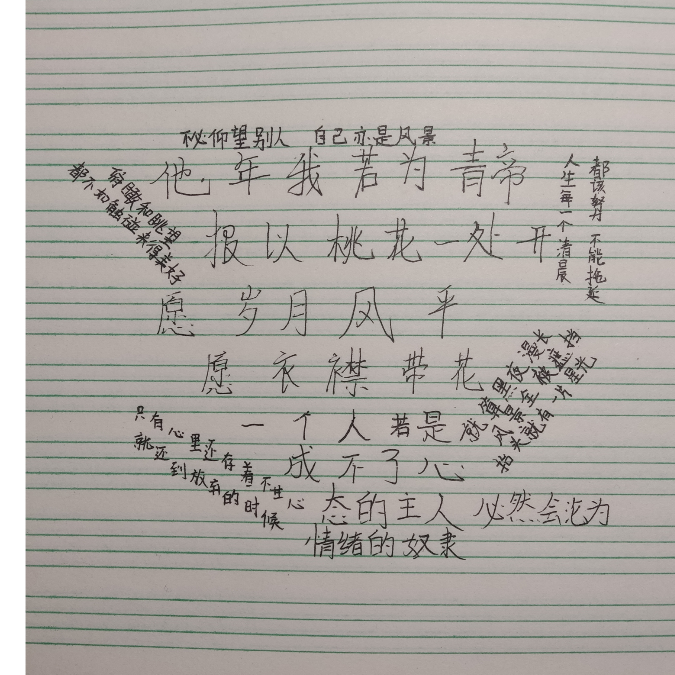 不必仰望别人 自己亦是风景
他年我若为青帝
报以桃花一处开
愿岁月风平
愿衣襟带花
一个人若是
成不了心
态的主人 必然会沦为
情绪的奴隶
俯瞰和眺望
都不如触碰来得美好
人生每一个清晨
都该努力 不能拖延
就算黑夜漫长
风景全被遮挡
抬头就有一片星光
只有心里还存着不甘心
就还没到放弃的时候